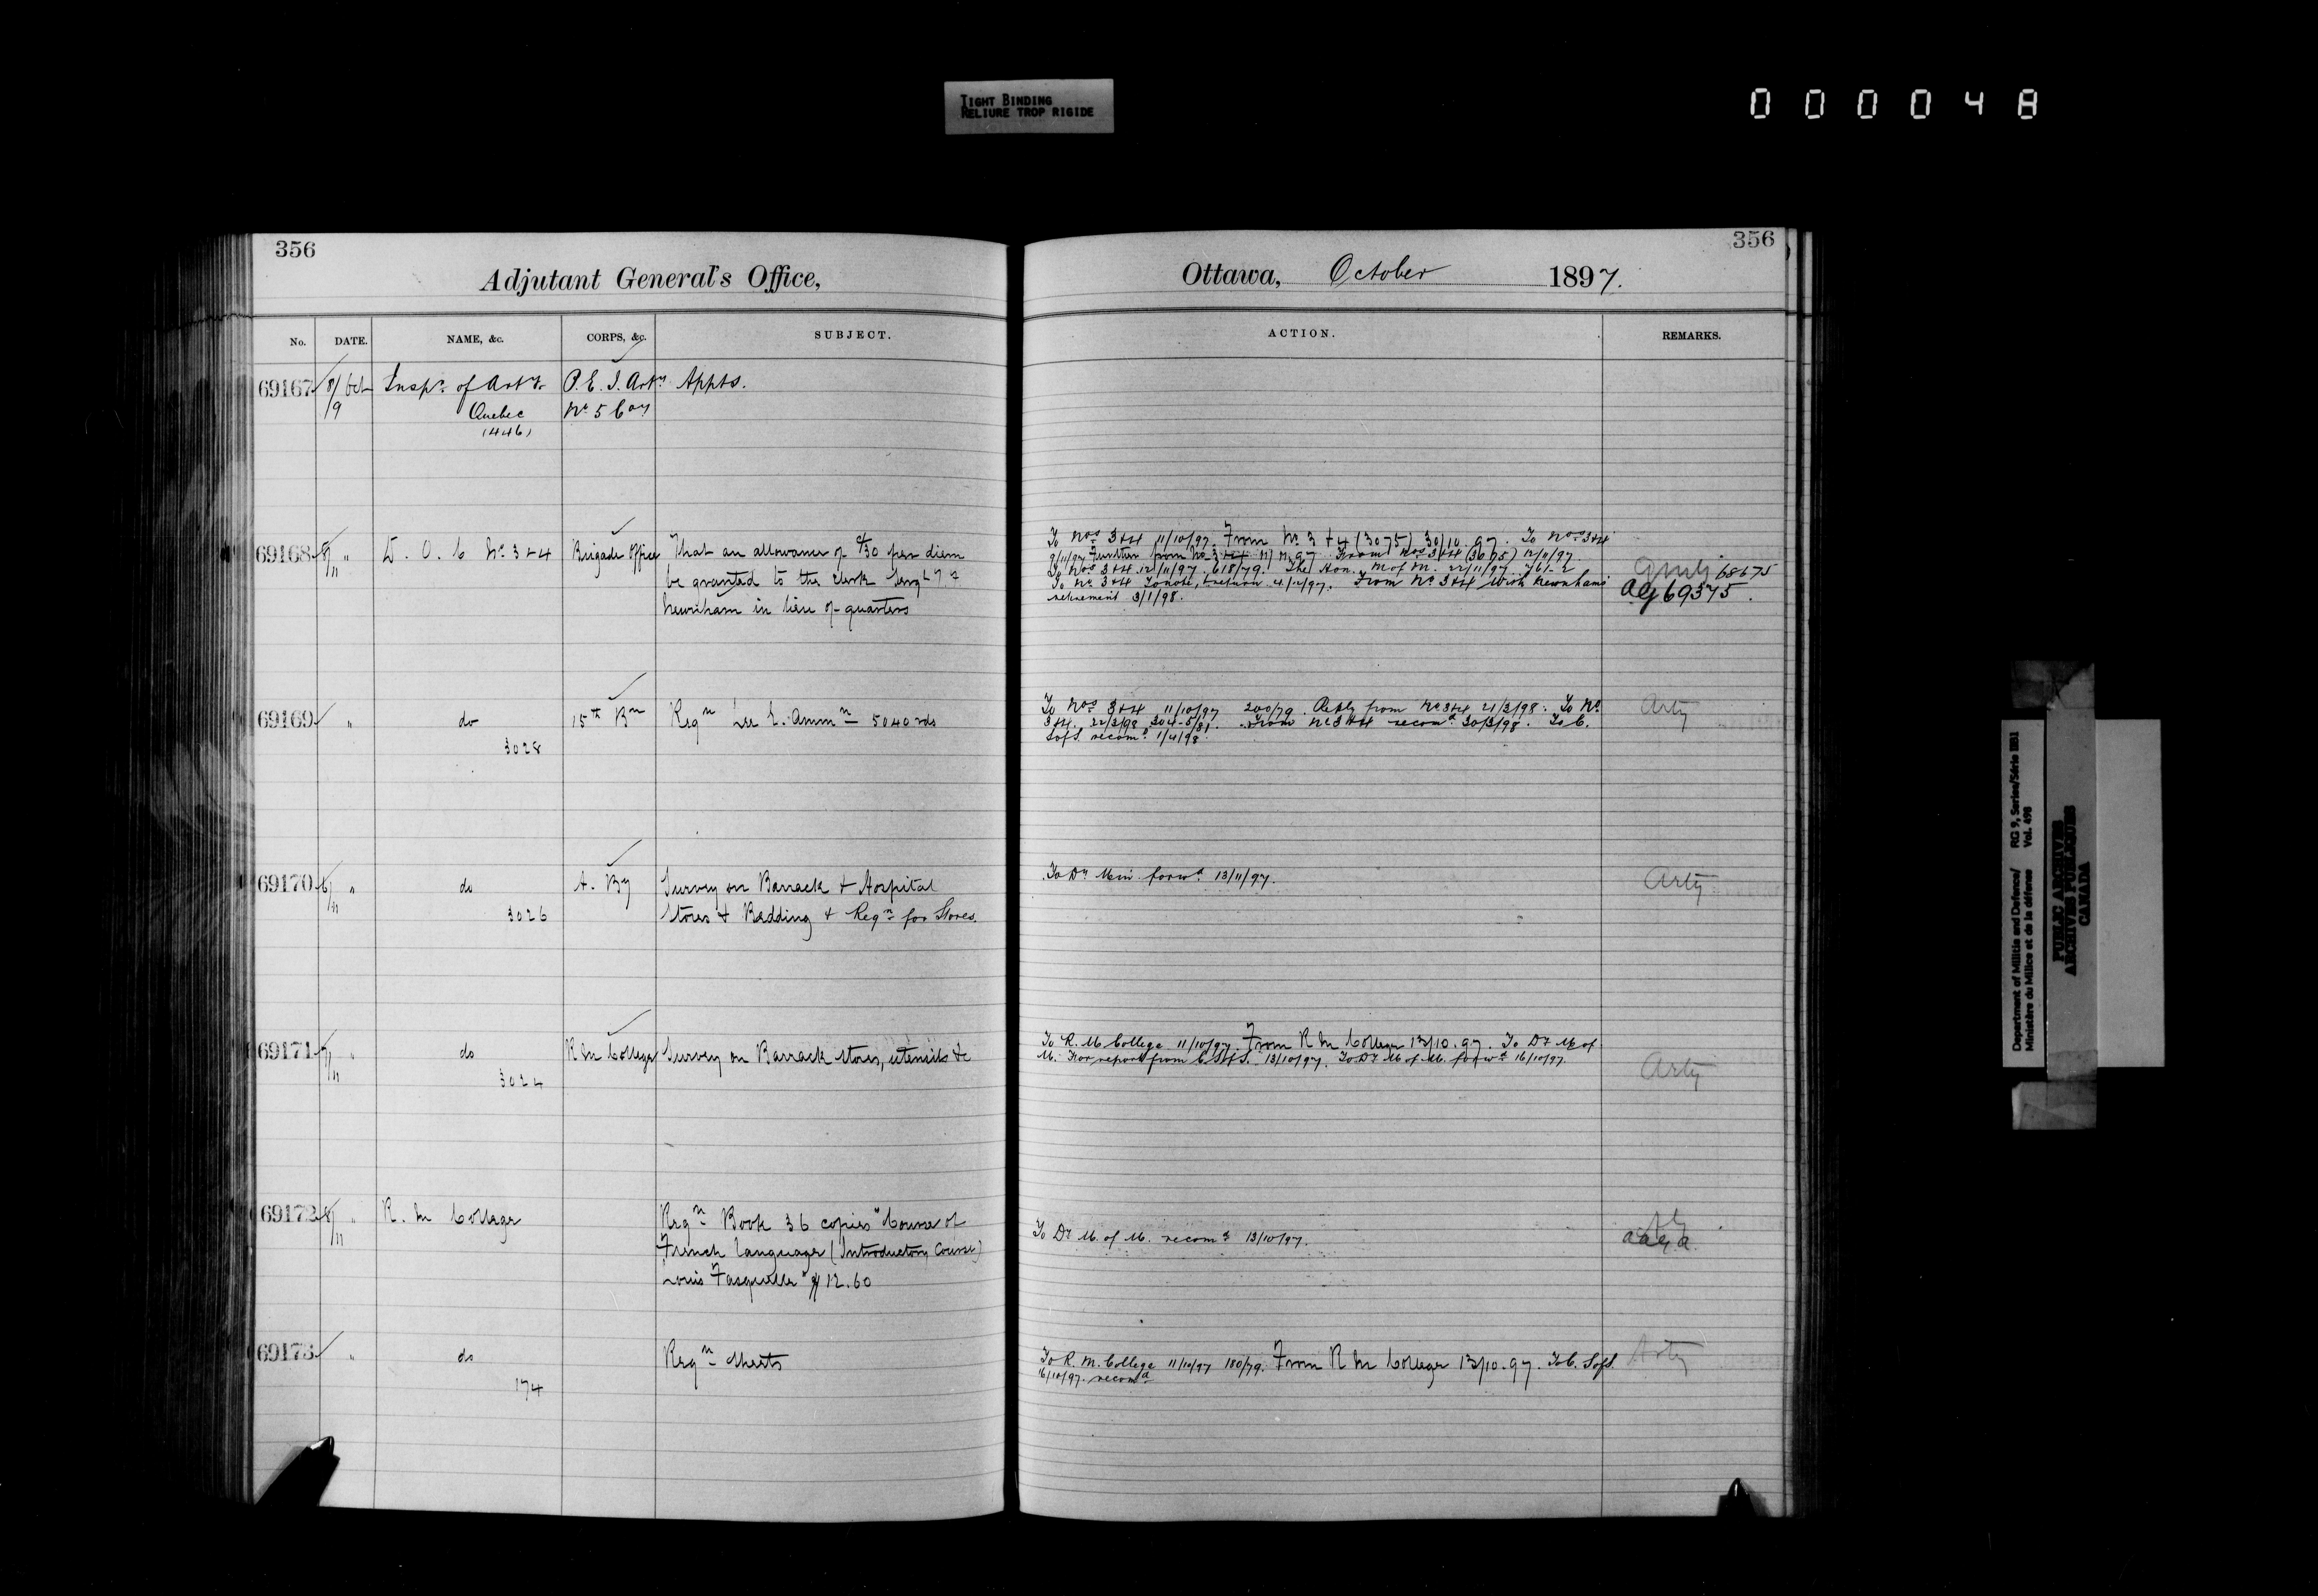 TIGHT BINDING
RELIURE TROP RIGIDE
000048
356
Adjutant General's Office,
No. DATE. NAME, &c. CORPS, &c. SUBJECT.
69167 8/9 Oct Inspr. of Arty P.E.I. Arty Appts.
Quebec No 5 Coy
(446)
69168 8/11 " D.O.C. No. 3+4 Brigade Office That an allowance of c/30 per diem
be granted to the clerk Sergt
Newnham in lieu of quarters
69169 " do 15th Bn Reqn L.E. Ammn 5040 rds
3028
69170 6/11 " do A. By Survey on Barrack + Hospital
3026 Stores + Bedding + Reqn for Stores.
69171 7/11 " do R M College Survey on Barrack stores, utensils &c
3024
69172 8/11 " R. M College Reqn Book 36 copies "Course of
French language (Introductory Course)
Louis Fasquelle" $12.60
69173 " do Reqn Sheets
174
356
Ottawa, October 1897.
ACTION. REMARKS.
To Nos 3+4 11/10/97. From No. 3+4 (3075) 30/10.97. To Nos 3+4
9/11/97 Further from No. 3+4 From Nos 3+4 (3675) 12/11/97
To Nos 3+4 12/11/97. 618/79. The Hon. M of M. 22/11/97 761-2
To No 3+4 To note, + return 4/12/97. From No 3+4 with Newnhams
retirement 3/1/98.
68675
AG 69375.
To Nos 3+4 11/10/97 200/79. Reply from No 3+4 21/3/98. To No
3+4. 22/3/98 204-5/81. From No 3+4 recomd 30/3/98. To C.
S of S. recomd 1/4/98.
Arty
To Dy Min. forwd 13/11/97.
Arty
To R. M. College 11/10/97. From R M College 13/10.97. To Dy M of
M. For report from C S of S. 13/10/97. To Dy M of M. forwd 16/10/97.
Arty
To Dy M. of M. recomd 13/10/97.
To R. M. College 11/10/97 180/79. From R M College 13/10.97. To C. S of S.
16/10/97. recomd
Arty
Department of Militia and Defence/ RG 9, Series/Série IIB1
Ministère du Milice et de la défence Vol. 498
PUBLIC ARCHIVES
ARCHIVES PUBLIQUES
CANADA